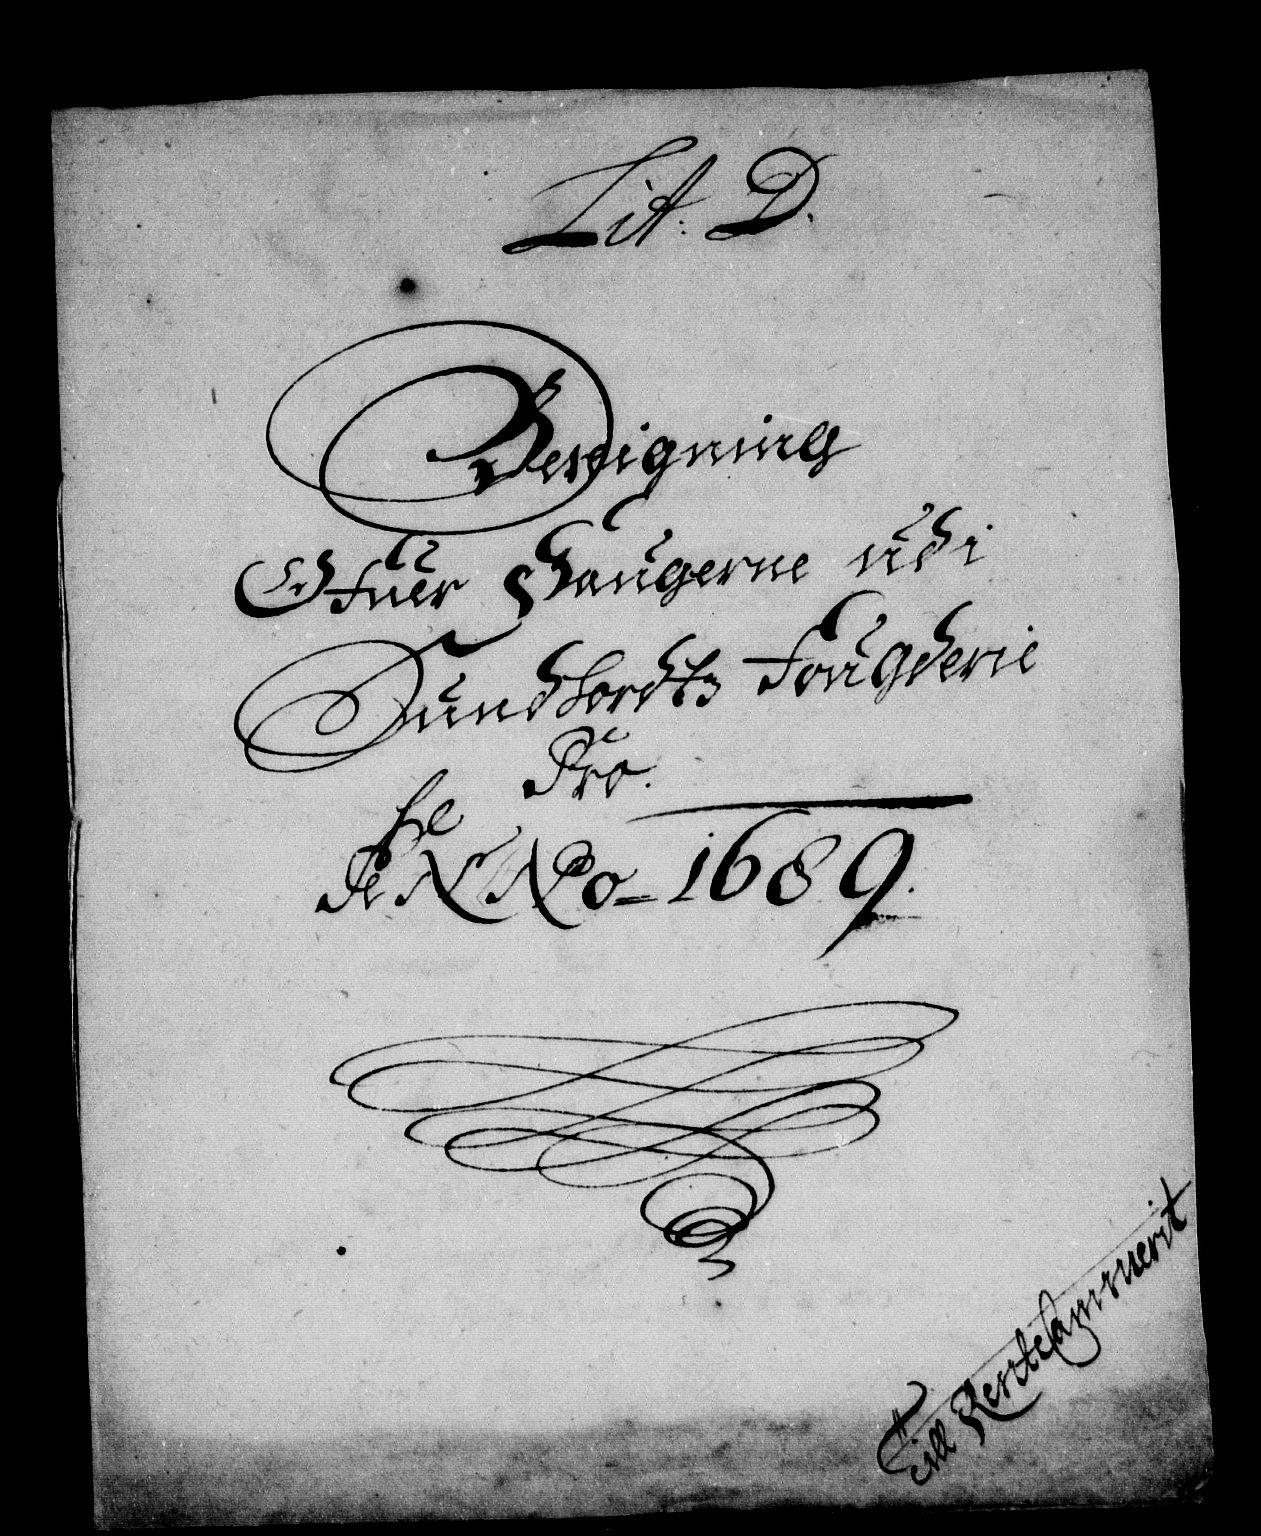 Lit: D.
Bevigning
Ofuer Saugerne udi
Sundfordtz Fougderie
Pro.
1689.
Till Rentekammerit